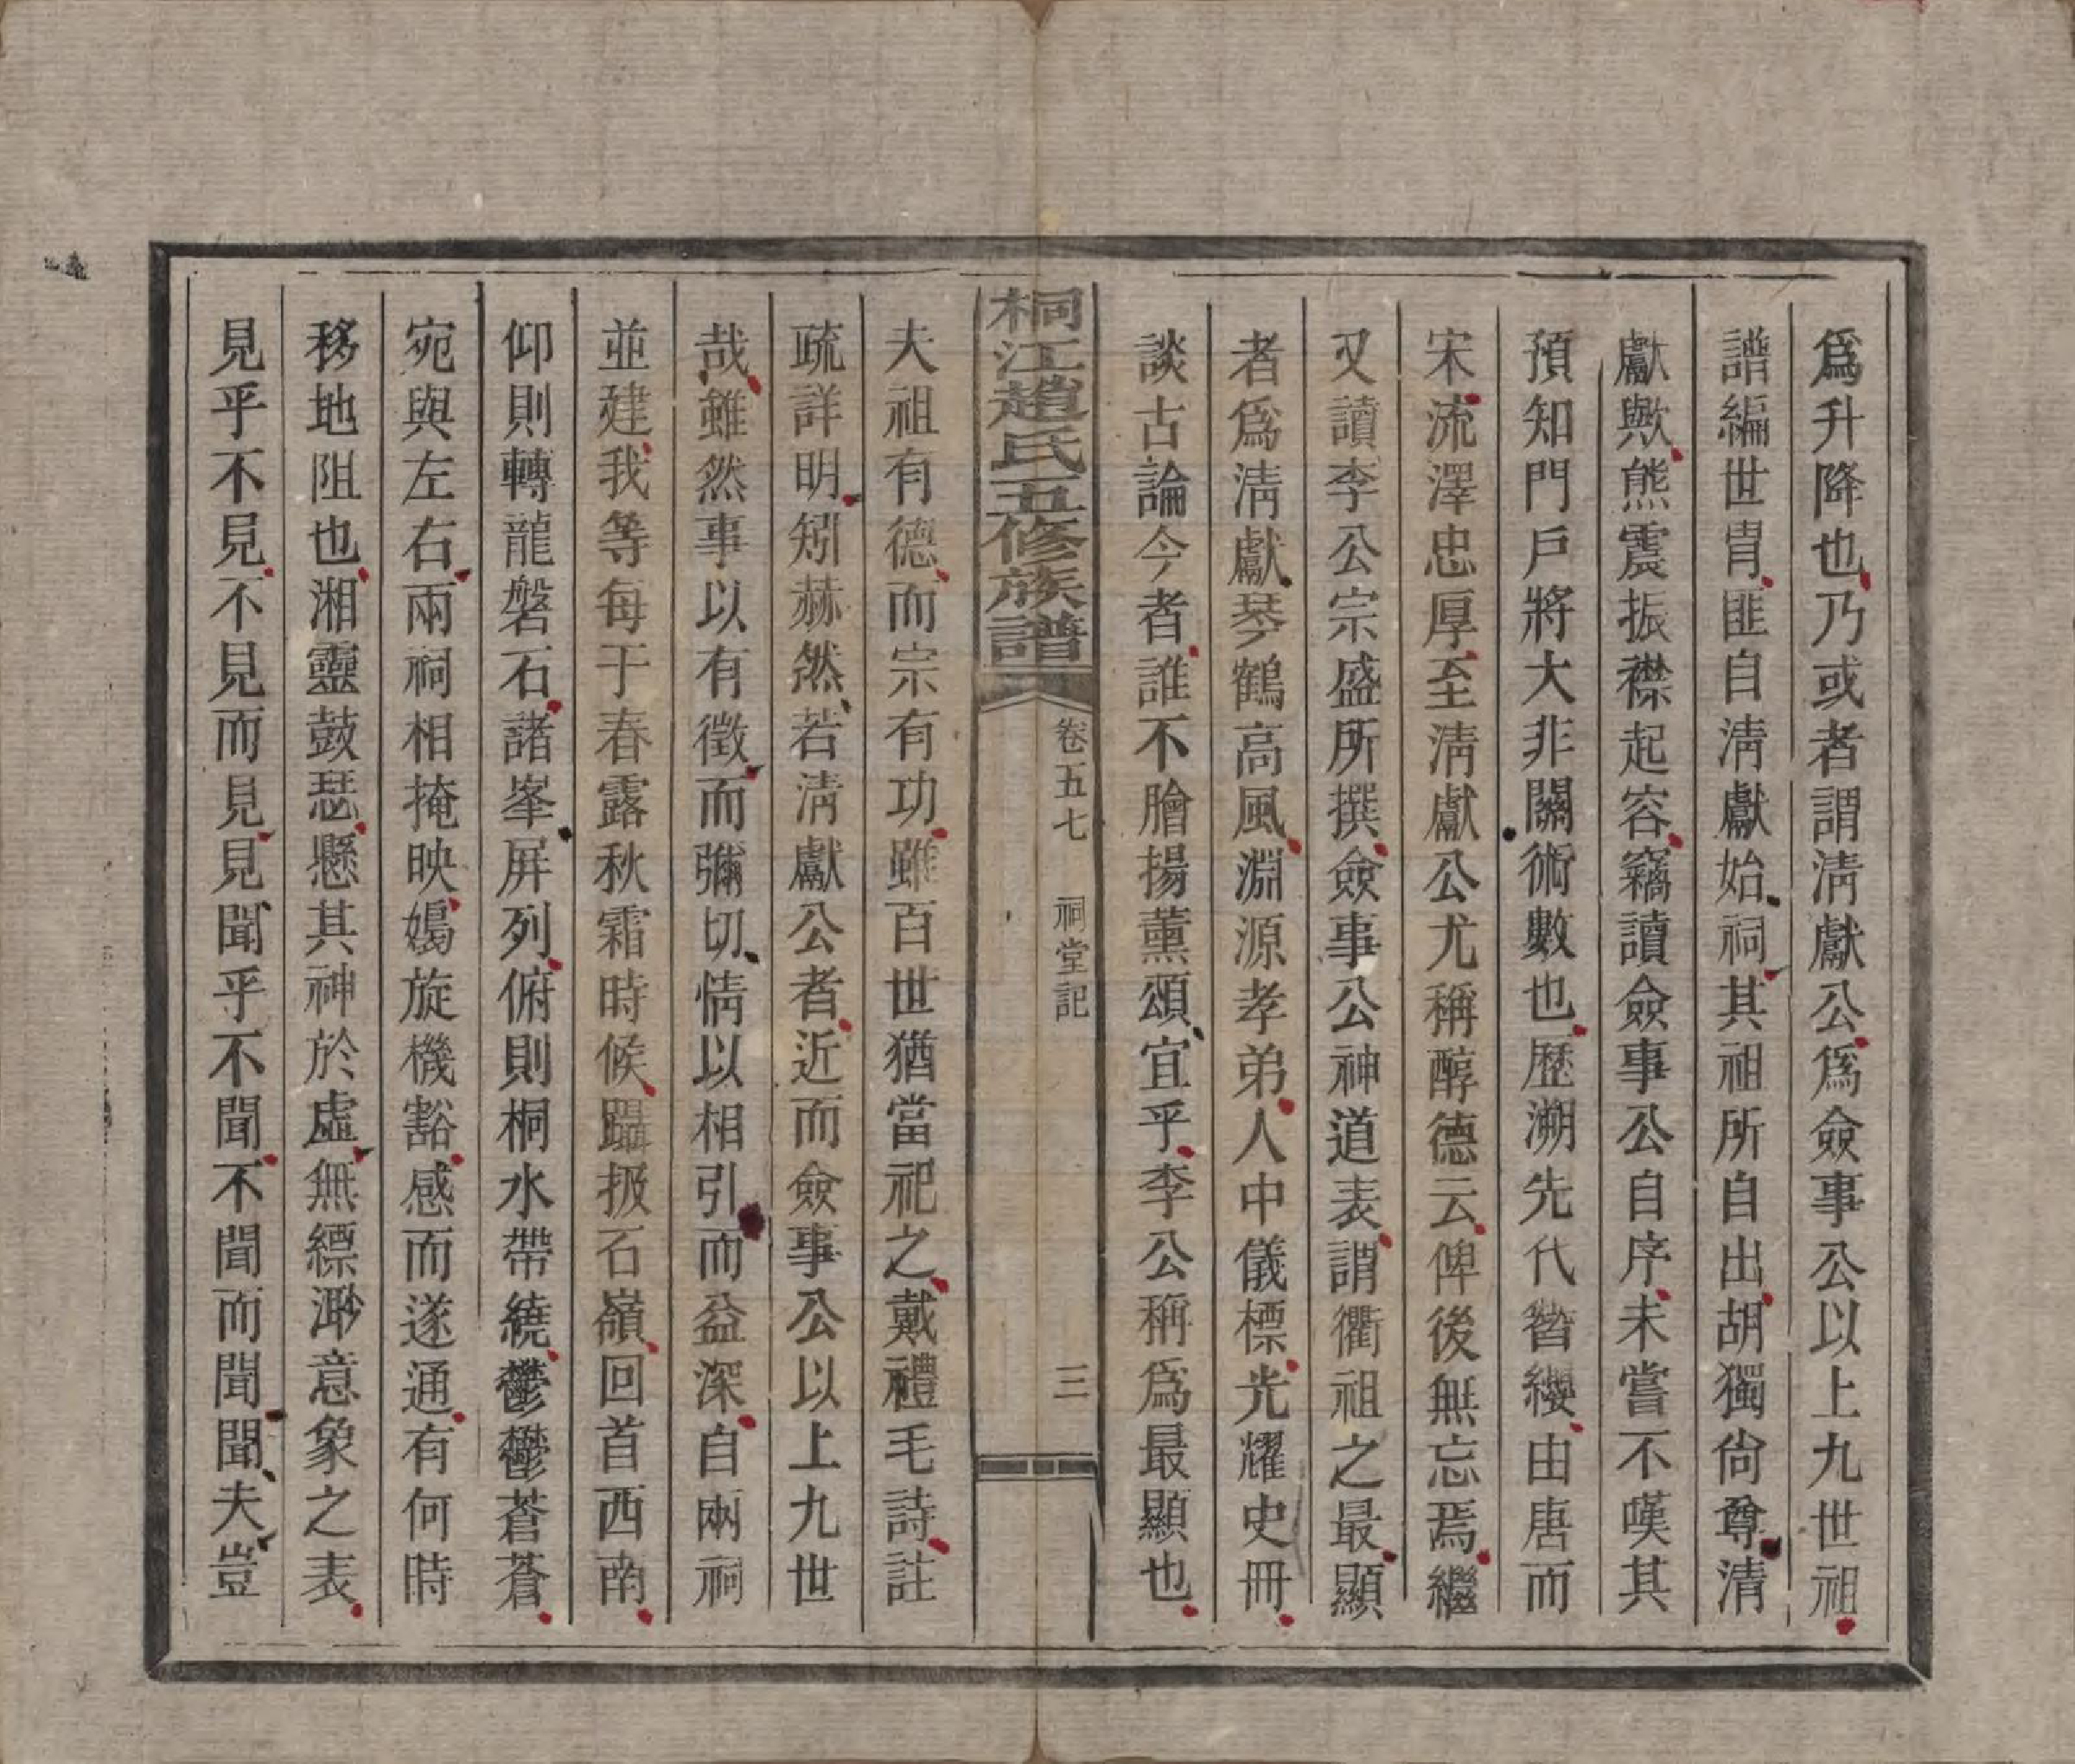 爲升降也乃或者謂淸獻公爲僉事公以上九世祖
譜編世胄匪自淸獻始祠其祖所自出胡獨尙尊清
獻歟熊震振襟起容竊讀僉事公自序未嘗不嘆其
預知門戶將大非關術數也歷溯先代簪纓由唐而
宋流澤忠厚至淸獻公尤稱醇德云俾後無忘焉繼
又讀李公宗盛所撰僉事公神道表謂衢祖之最顯
者爲淸獻琴鶴高風淵源孝弟人中儀標光耀史冊
談古論今者誰不膾揚薰頌宜乎李公稱爲最顯也
桐江趙氏五修族譜
卷五七
祠堂記
三
夫祖有德而宗有功雖百世猶當祀之戴禮毛詩註
疏詳明矧赫然若淸獻公者近而僉事公以上九世
哉雖然事以有徵而彌切情以相引而益深自兩祠
並建我等每于春露秋霜時候躡扱石嶺回首西南
仰則轉龍磐石諸峯屏列俯則桐水帶繞鬱鬱蒼蒼
宛與左右兩祠相掩映嫣旋機豁感而遂通有何時
移地阻也湘靈鼓瑟懸其神於虛無縹渺意象之表
見乎不見不見而見見聞乎不聞不聞而聞聞夫豈